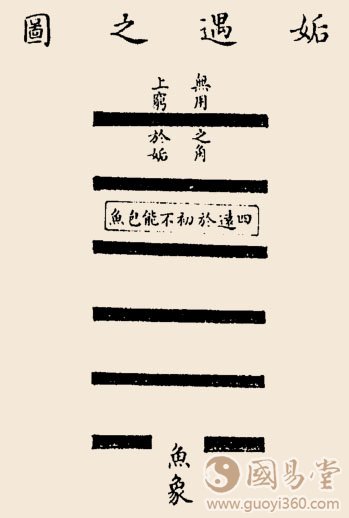 姤遇之圖
無用之角
上窮於姤
四遠於初不能包魚
魚象
國易堂
www.guoyi360.com